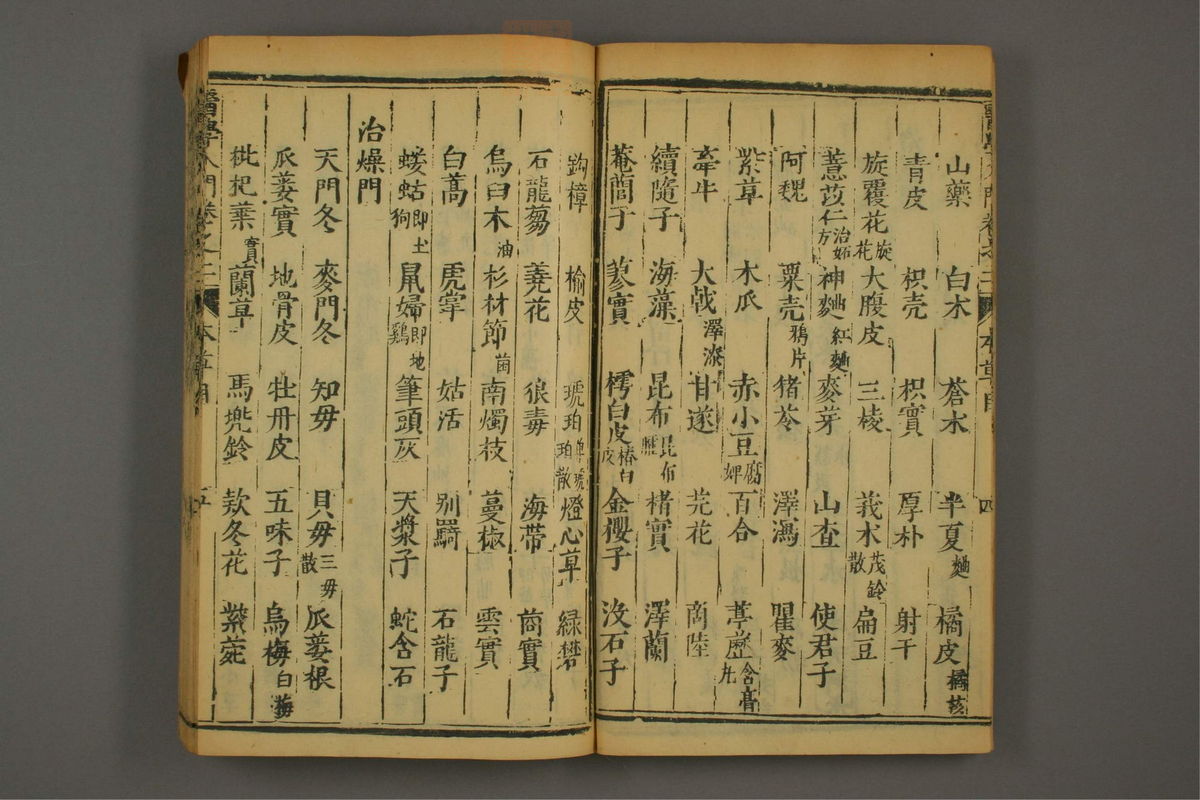 山藥 白朮 蒼朮 半夏麯 橘皮橘核
青皮 枳壳 枳實 厚朴 射干
旋覆花旋花 大腹皮 三棱 莪朮茂鈴散 扁豆
薏苡仁治妬方 神麯曲紅麯 麥芽 山查 使君子
阿魏 粟壳鴉片 猪苓 澤瀉 瞿麥
紫草 木瓜 赤小豆腐婢 百合 葶藶含膏丸
牽牛 大戟澤漆 甘遂 芫花 商陸
續隨子 海藻 昆布昆布臛 楮實 澤蘭
菴䕡子 蓼實 樗白皮椿白皮 金櫻子 没石子
鈎樟 榆皮 琥珀單琥珀散 燈心草 緑礬
石龍蒭 蕘花 狼毒 海帶 茼實
烏臼木油 杉材節菌 南燭枝 蔓椒 雲實
白蒿 虎掌 姑活 别羇 石龍子
螻蛄即土狗 鼠婦即地雞 筆頭灰 天漿子 蛇含石
治燥門
天門冬 麥門冬 知毋 貝毋三毋散 瓜蔞根
瓜蔞實 地骨皮 牡丹皮 五味子 烏梅白梅
枇杷葉實 蘭草 馬兠鈴 欵冬花 紫菀
醫學入門卷之二 本草目 四
醫學入門卷之二 本草目 五